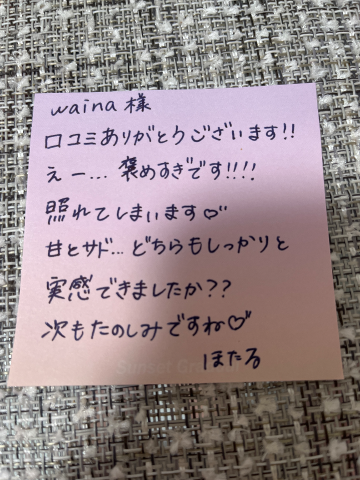 waina様
口コミありがとうございます!!
えー…褒めすぎです!!!!
照れてしまいます♡
甘とサド…どちらもしっかりと
実感できましたか??
次もたのしみですね♡
ほたる